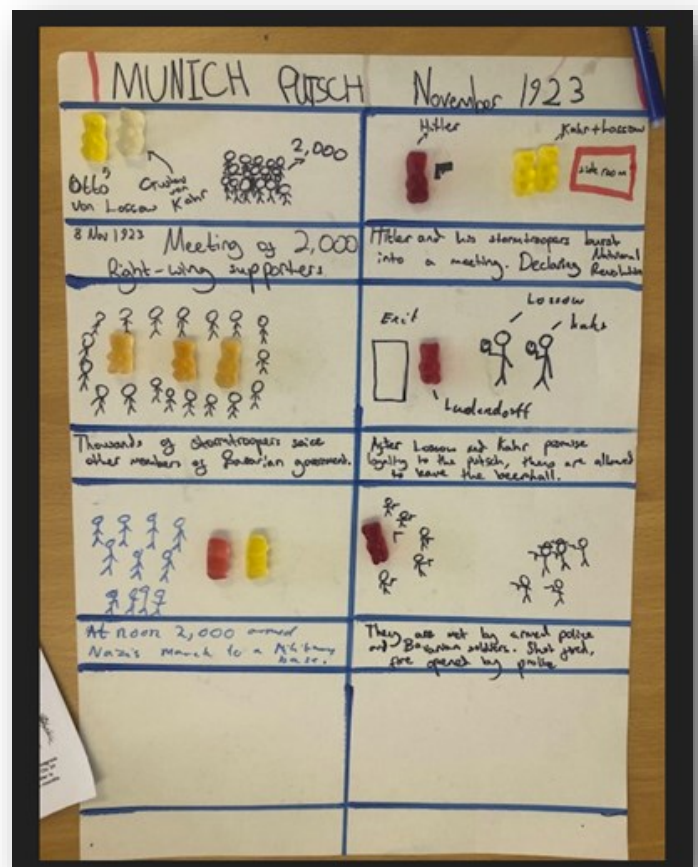 MUNICH PUTSCH November 1923
2,000
Otto von Lossow
Gustav von Kahr
Hitler
Kahr+Lossow
side room
8 Nov 1923 Meeting of 2,000
Right-wing supporters
Hitler and his stormtroopers burst
into a meeting. Declaring National
Revolution
Exit
Lossow
kahr
Ludendorff
Thousands of stormtroopers seice
other members of Bavarian government.
After Lossow and Kahr promise
loyalty to the putsch, they are allowed
to leave the beerhall.
At noon 2,000 armed
Nazis march to a Military
base.
They are met by armed police
and Bavarian soldiers. Shot fired,
fire opened by police